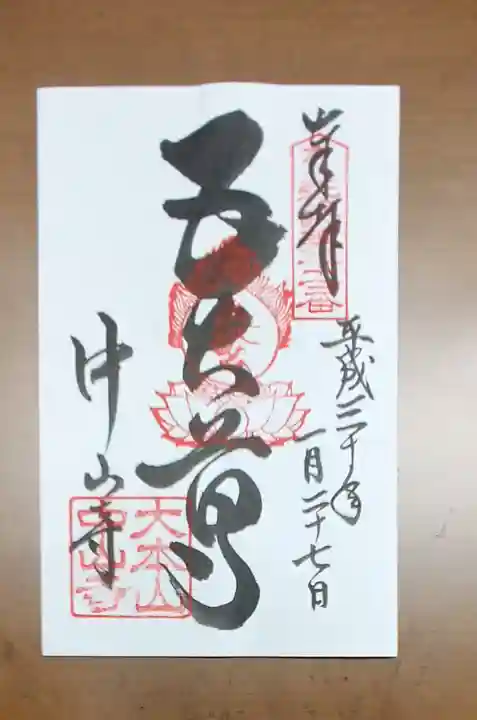 奉拝
平成三十年
一月二十七日
五大尊
中山寺
大本山
中山寺